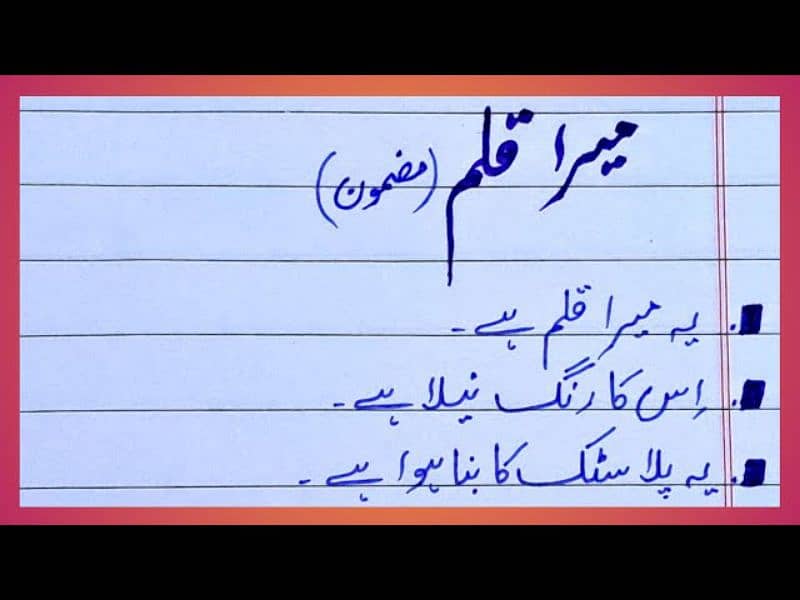 میرا قلم (مضمون)
یہ میرا قلم ہے۔
اِس کا رنگ نیلا ہے۔
یہ پلاسٹک کا بنا ہوا ہے۔